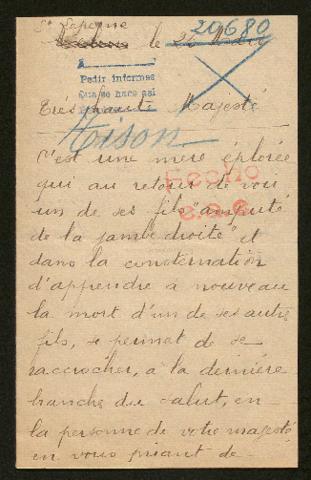 St Lapeyne
le
20680
Pedir informes
Que se hace asi
Très haute Majesté
Tison
C'est une mère éplorée
qui au retour de voir
Fecho
un de ses fils "amputé
de la jambe droite" et
dans la consternation
d'apprendre à nouveau
la mort d'un de ses autres
fils, se permet de se
raccrocher, à la dernière
branche du salut, en
la personne de votre majesté
en vous priant de